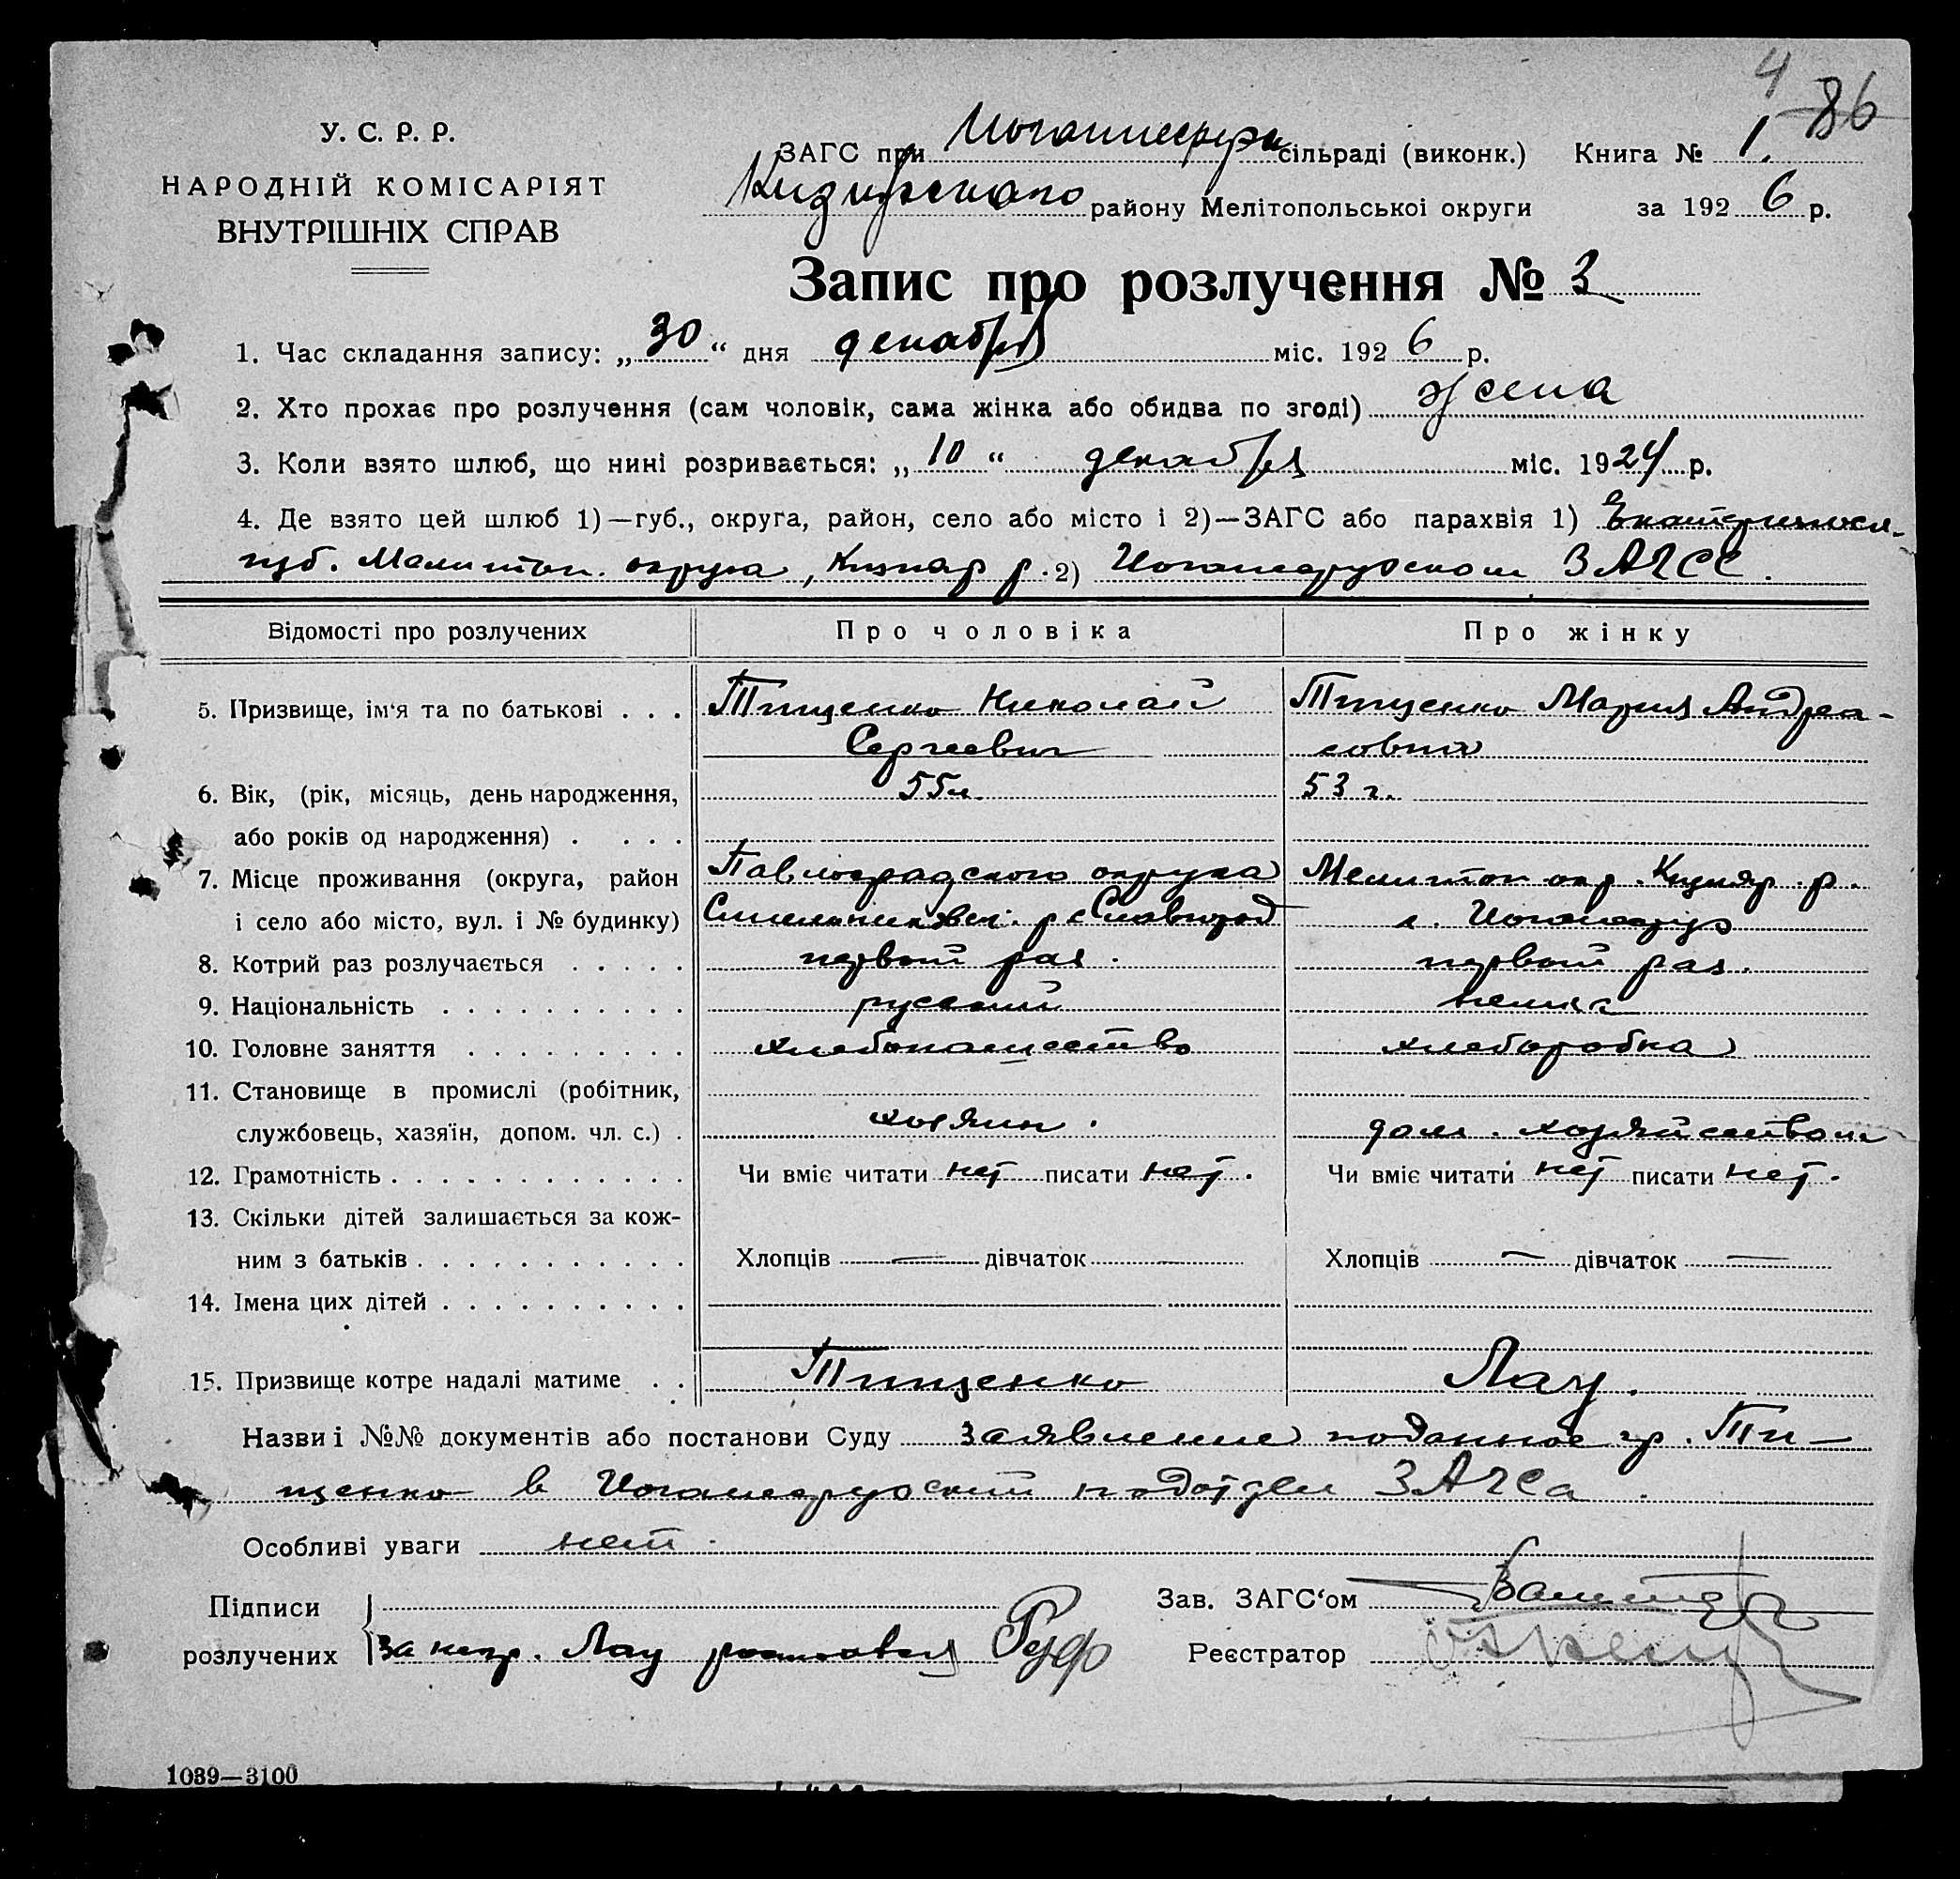 4
86
У. С. Р. Р.
НАРОДНІЙ КОМІСАРІЯТ
ВНУТРІШНІХ СПРАВ
ЗАГС при сільраді (виконк.) Книга № 1.
району Мелітопольської округи за 192 6 р.
Запис про розлучення № 3
1. Час складання запису: „ 30 “ дня декабря міс. 192 6 р.
2. Хто прохає про розлучення (сам чоловік, сама жінка або обидва по згоді) жена
3. Коли взято шлюб, що нині розривається: „ 10 “ декабря міс. 19 24 р.
4. Де взято цей шлюб 1)—губ., округа, район, село або місто і 2)—ЗАГС або парахвія 1) Екатериносл.
губ. округа, р. 2) ЗАГСе.
Відомості про розлучених Про чоловіка Про жінку
5. Призвище, ім‘я та по батькові . . . Тищенко Николай Тищенко Мария Андреа-
Сергеевич совна
6. Вік, (рік, місяць, день народження, 55 л. 53 г.
або років од народження) . . . .
7. Місце проживання (округа, район Павлоградского округа Мелитоп окр. р.
і село або місто, вул. і № будинку) р с Славгород с.
8. Котрий раз розлучається . . . . . первый раз. первый раз.
9. Національність . . . . . . . . . . русский немка
10. Головне заняття . . . . . . . . . хлебопашество хлеборобка
11. Становище в промислі (робітник,
службовець, хазяїн, допом. чл. с.) . хозяин. дом. хозяйством
12. Грамотність . . . . . . . . . . . . Чи вміє читати нет писати нет. Чи вміє читати нет писати нет.
13. Скільки дітей залишається за кож-
ним з батьків . . . . . . . . . . . Хлопців — дівчаток — Хлопців — дівчаток —
14. Імена цих дітей . . . . . . . . . .
15. Призвище котре надалі матиме . . Тищенко Лау.
Назви і №№ документів або постанови Суду заявление поданное гр. Ти-
щенко в подотдел ЗАГСа.
Особливі уваги нет.
Підписи Зав. ЗАГС‘ом
розлучених за негр. Лау Реєстратор
1039—3100